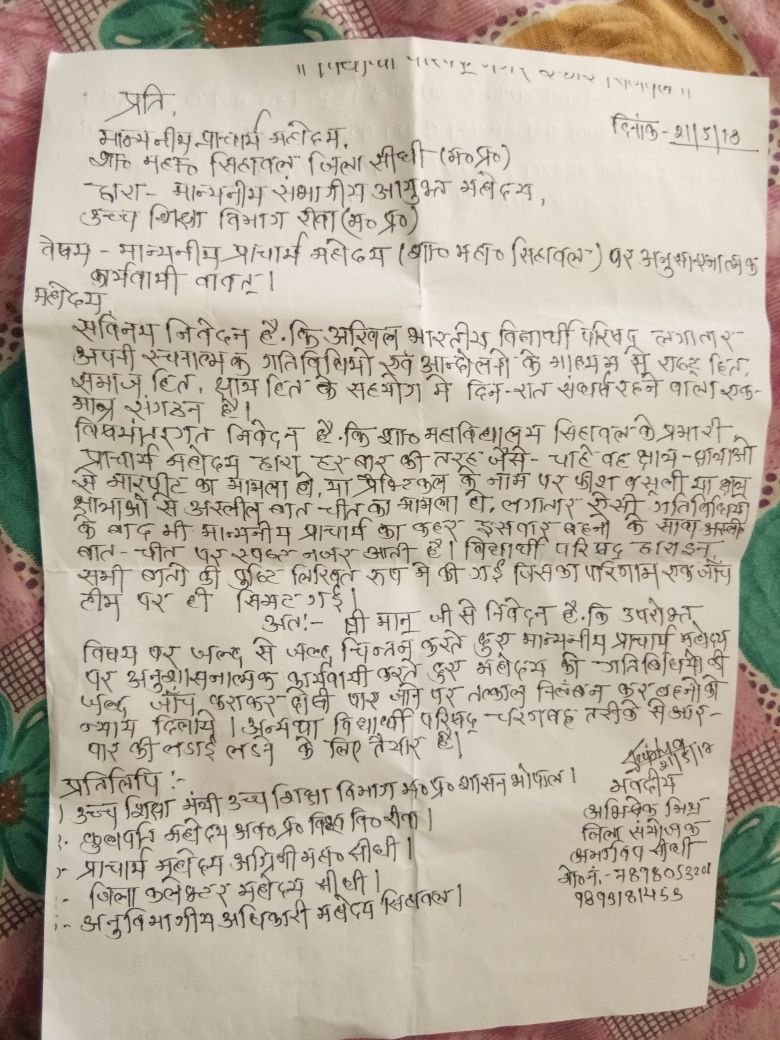 प्रति,
दिनांक - 21/5/18
मान्यनीय प्राचार्य महोदय,
शा० महा० सिहावल जिला सीधी (म०प्र०)
द्वारा - मान्यनीय संभागीय आयुक्त महोदय,
उच्च शिक्षा विभाग रीवा (म० प्र०)
विषय - मान्यनीय प्राचार्य महोदय (शा० महा० सिहावल) पर अनुशासनात्मक
कार्यवायी वावत् ।
महोदय,
सविनय निवेदन है. कि अखिल भारतीय विद्यार्थी परिषद लगातार
अपनी रचनात्मक गतिविधियो एवं आन्दोलनो के माध्यम से राष्ट्र हित,
समाज हित, छात्र हित के सहयोग मे दिन-रात संघर्ष रहने वाला एक-
मात्र संगठन है।
विषयांतरगत निवेदन है. कि शा० महाविद्यालय सिहावल के प्रभारी
प्राचार्य महोदय द्वारा हर बार की तरह जैसे - चाहे वह छात्र - छात्राओ
से मारपीट का मामला हो, या प्रैक्टिकल के नाम पर फीश वसूली या छात्र
छात्राओ से अस्लील बात-चीत का मामला हो, लगातार ऐसी गतिविधियो
के बाद भी मान्यनीय प्राचार्य का कहर इसबार बहनो के साथ अस्लील
बात - चीत पर स्पष्ट नजर आती है। विद्यार्थी परिषद द्वारा इन
सभी बातो की पुष्टि लिखित रूप मे की गई जिसका परिणाम एक जाँच
टीम पर ही सिमट गई।
अतः- श्री मान् जी से निवेदन है. कि उपरोक्त
विषय पर जल्द से जल्द चिन्तन करते हुए मान्यनीय प्राचार्य महोदय
पर अनुशासनात्मक कार्यवायी करते हुए महोदय की गतिविधियो की
जल्द जाँच कराकर दोषी पाए जाने पर तत्काल निलंबन कर बहनो को
न्याय दिलाये। अन्यथा विद्यार्थी परिषद् चरणबद्ध तरीके से आर-
पार की लडाई लडने के लिए तैयार है।
प्रतिलिपि :-
उच्च शिक्षा मंत्री उच्च शिक्षा विभाग म० प्र० शासन भोपाल।
कुलपति महोदय अव० प्र० विश्व वि० रीवा।
प्राचार्य महोदय अग्रिणी महा० सीधी।
जिला कलेक्टर महोदय सीधी।
अनुविभागीय अधिकारी महोदय सिहावल।
भवदीय
अभिषेक मिश्र
जिला संयोजक
अभाविप सीधी
मो० नं. - 7898053201
9893181453